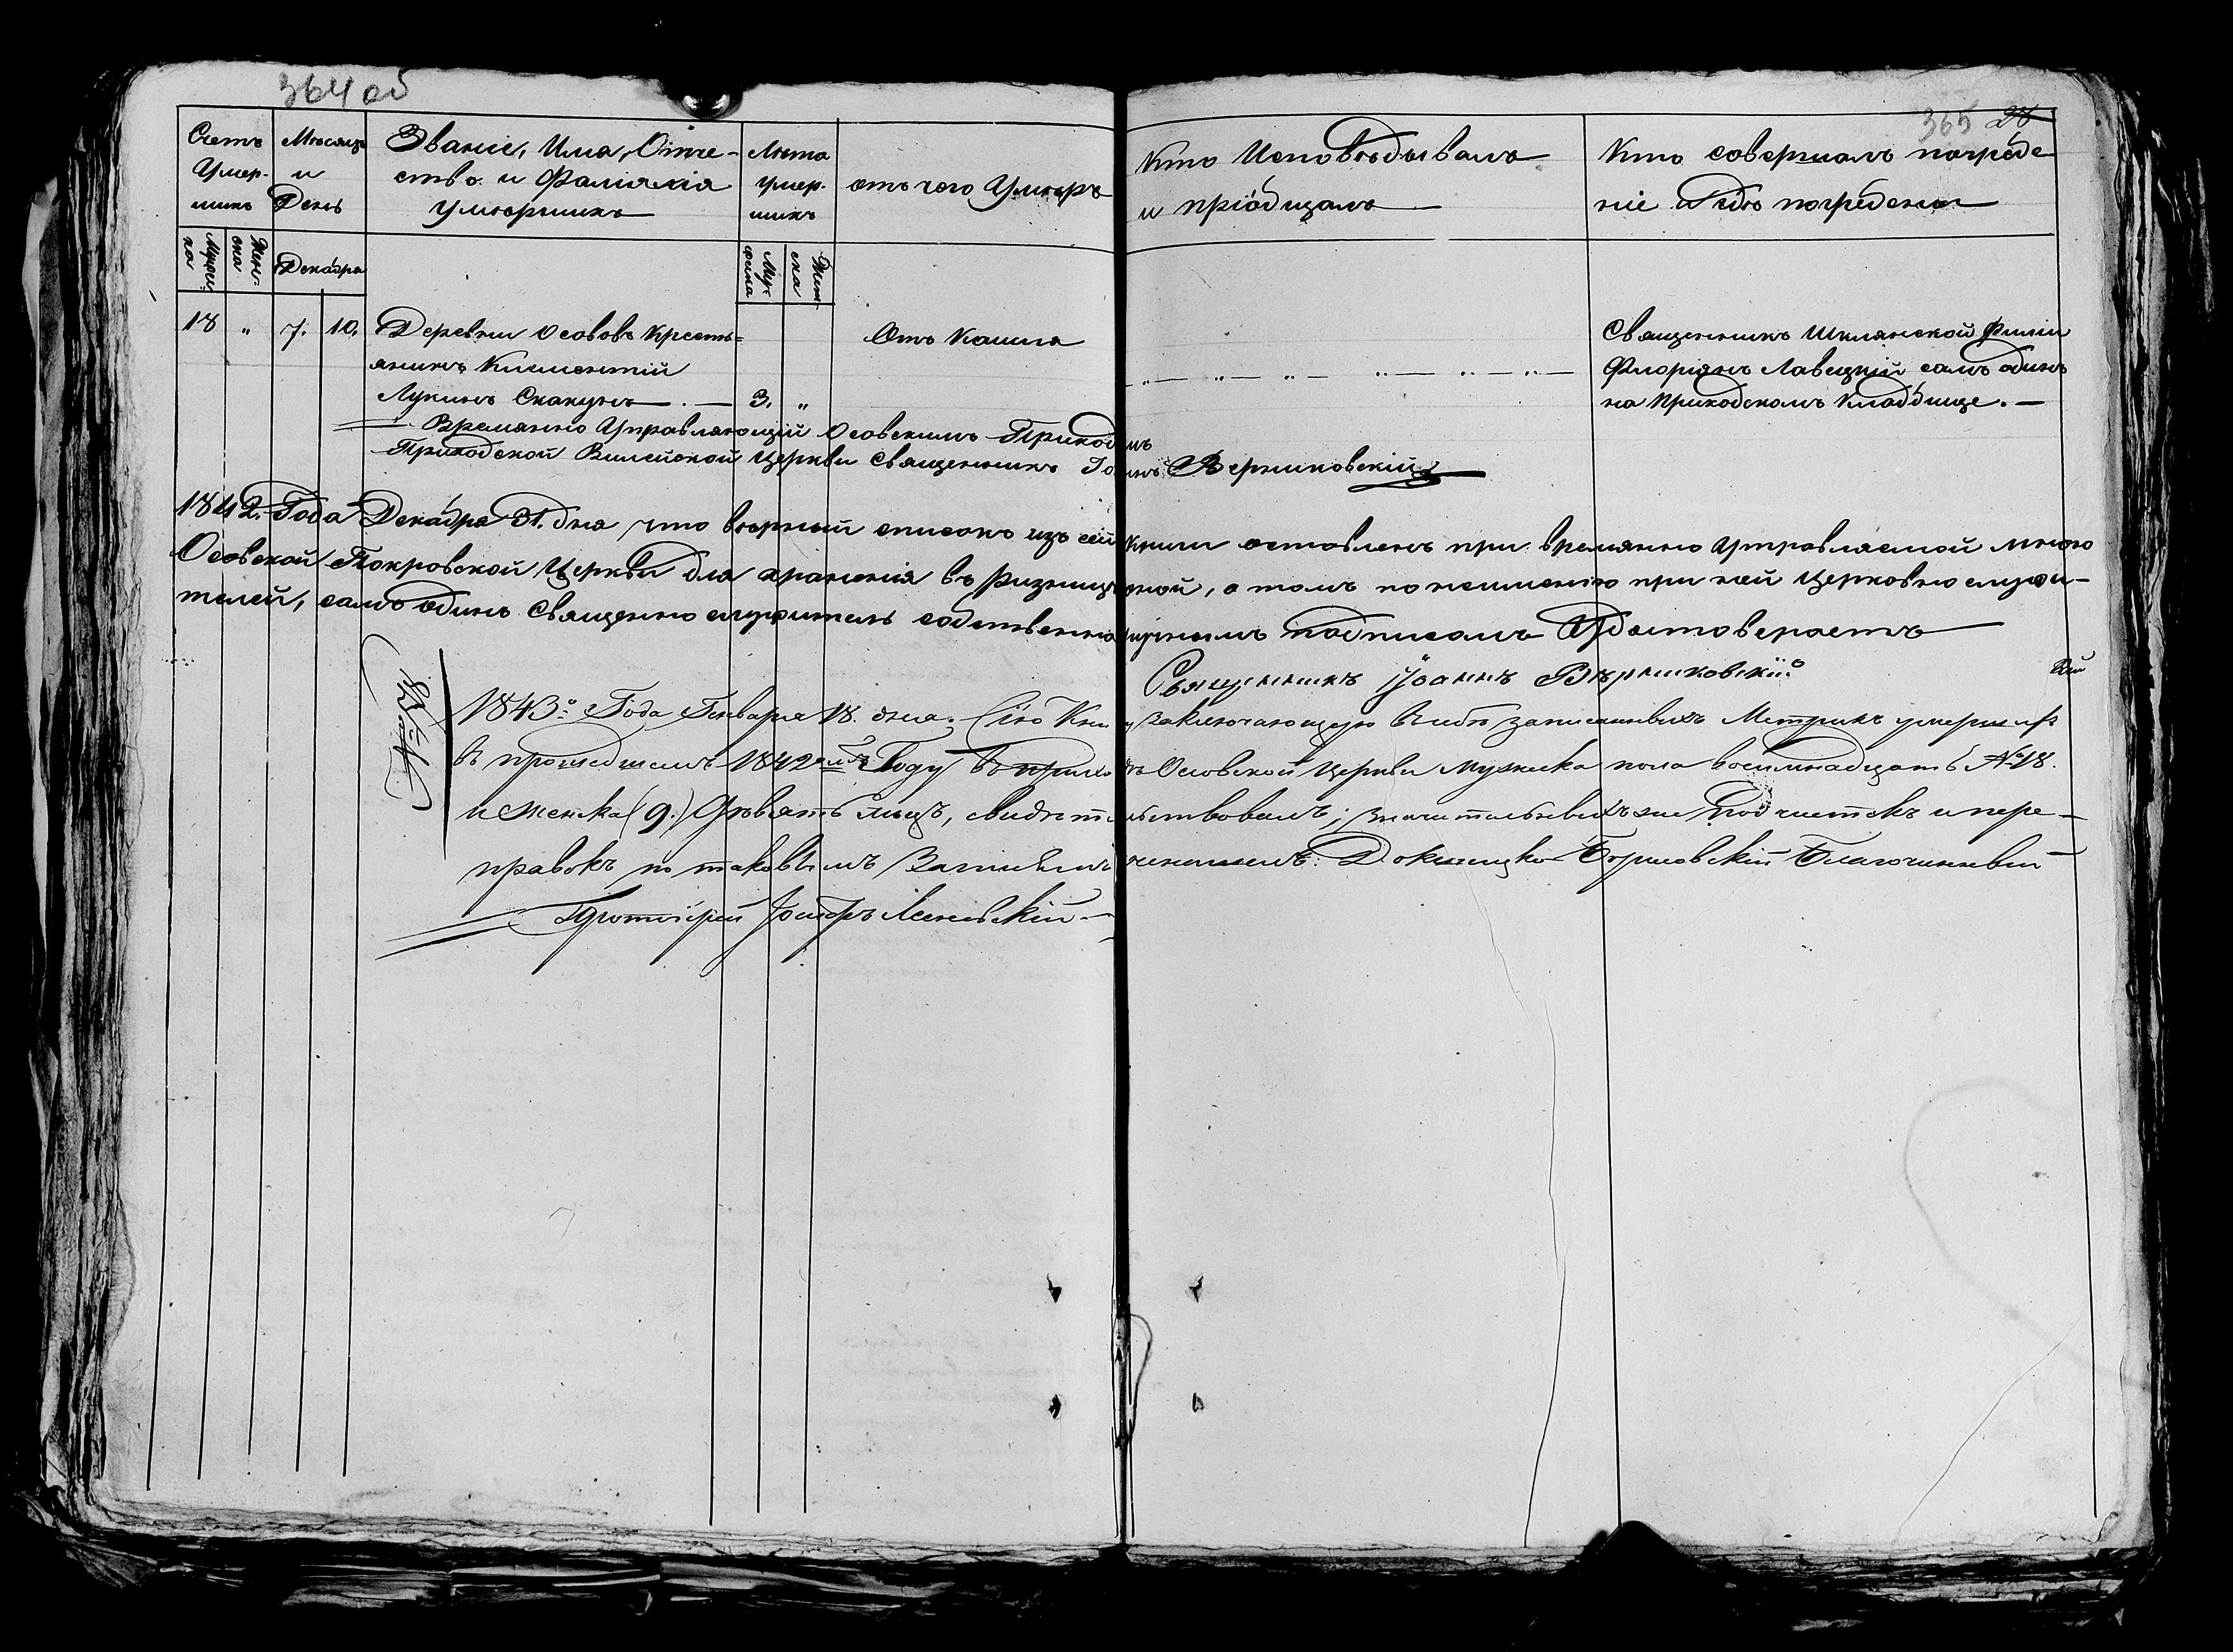 364 об
365 28
Счетъ Умер-шихъ
Мѣсяцъ и День
Званіе, Имя, Отче-
ство и Фамилія
умершихъ
Лѣта умер-шихъ
отъ чего Умеръ
Кто Исповѣдывалъ
и пріобщалъ
Кто совершалъ погребе
ніе и Гдѣ погребены
Мужес-ка
Жен-ска
Декабря
Муж-еска
Жен-ска
18 " 7. 10. Деревни Осововъ Крестъ= Отъ Кашля Священникъ Шклянской Филіи
янинъ Климентій " " " " " " Флоріянъ Лавецкій самъ одинъ
Лукинъ Скакунъ 3. " на Приходскомъ Кладбище.
Времянно Управляющій Осовскимъ Приходомъ
Приходской Вилейской Церкви Священникъ Іоаннъ Верниковскій
1842. Года Декабря 31. дня что вѣрный списокъ изъ сей Книги оставленъ при времянно Управляемой мною
Осовской Покровской Церкви для храненія въ ризницѣ оной, о томъ по неименію при ней Церковно служи-
телей, самъ одинъ Священно служитель собственно ручнымъ подписомъ Удостовераетъ
Священникъ Іоаннъ Вѣрниковскій
1843.о Года Генваря 18. дня. Сію Книгу заключающую въ себѣ записанныхъ Метрикъ умершихъ
въ прошедшемъ 1842мъ Году въ приходѣ Осовской Церкви Мужеска пола восимнадцать №18.
и женска (9.) Девять лицъ, свидѣтельствовалъ; значительныхъ же подчистокъ и пере-
правокъ по таковымъ Записямъ Докшицко-Борисовскій Благочинный
Протоіерей Іосифъ